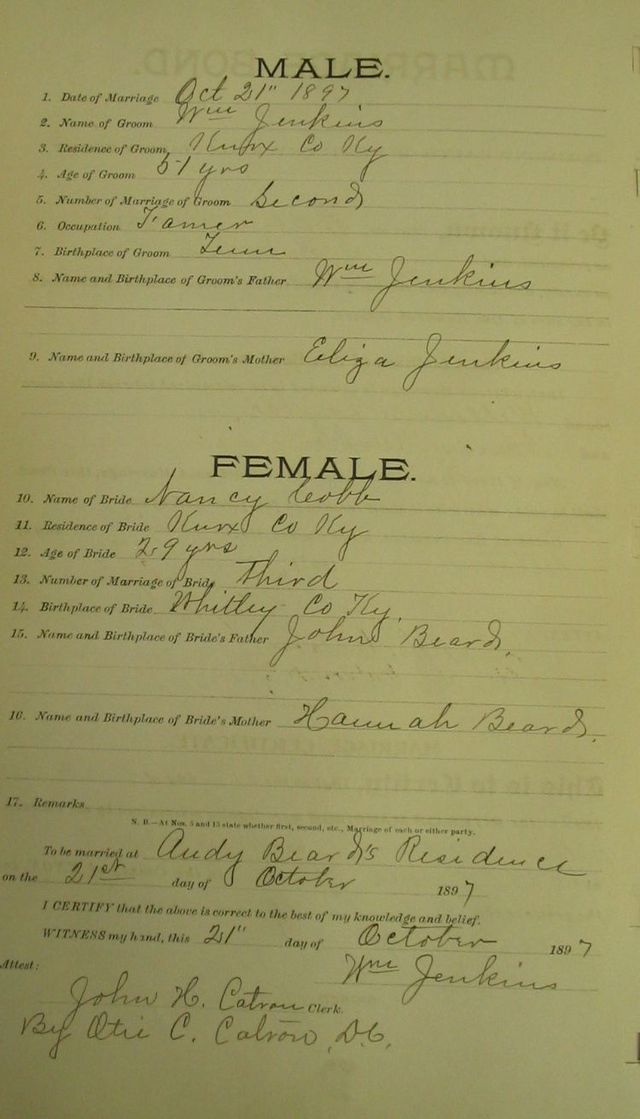 MALE.
1. Date of Marriage Oct 21" 1897
2. Name of Groom Wm Jenkins
3. Residence of Groom Knox Co Ky
4. Age of Groom 51 yrs
5. Number of Marriage of Groom Second
6. Occupation Famer
7. Birthplace of Groom Tenn
8. Name and Birthplace of Groom's Father Wm Jenkins
9. Name and Birthplace of Groom's Mother Eliza Jenkins
FEMALE.
10. Name of Bride Nancy Cobb
11. Residence of Bride Knox Co Ky
12. Age of Bride 29 yrs
13. Number of Marriage of Bride Third
14. Birthplace of Bride Whitley Co Ky.
15. Name and Birthplace of Bride's Father John Beard.
16. Name and Birthplace of Bride's Mother Hannah Beard.
17. Remarks
N. B.—At Nos. 5 and 13 state whether first, second, etc., Marriage of each or either party.
To be married at Andy Beard's Residence
on the 21st day of October 1897
I CERTIFY that the above is correct to the best of my knowledge and belief.
WITNESS my hand, this 21" day of October 1897
Wm Jenkins
Attest:
John H. Catron Clerk.
By Otie C. Catron, D.C.